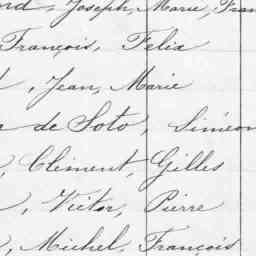 Joseph, Marie, Fran
François, Felix
, Jean, Marie
de Soto, Siméon
, Clément, Gilles
, Victor, Pierre
, Michel, François